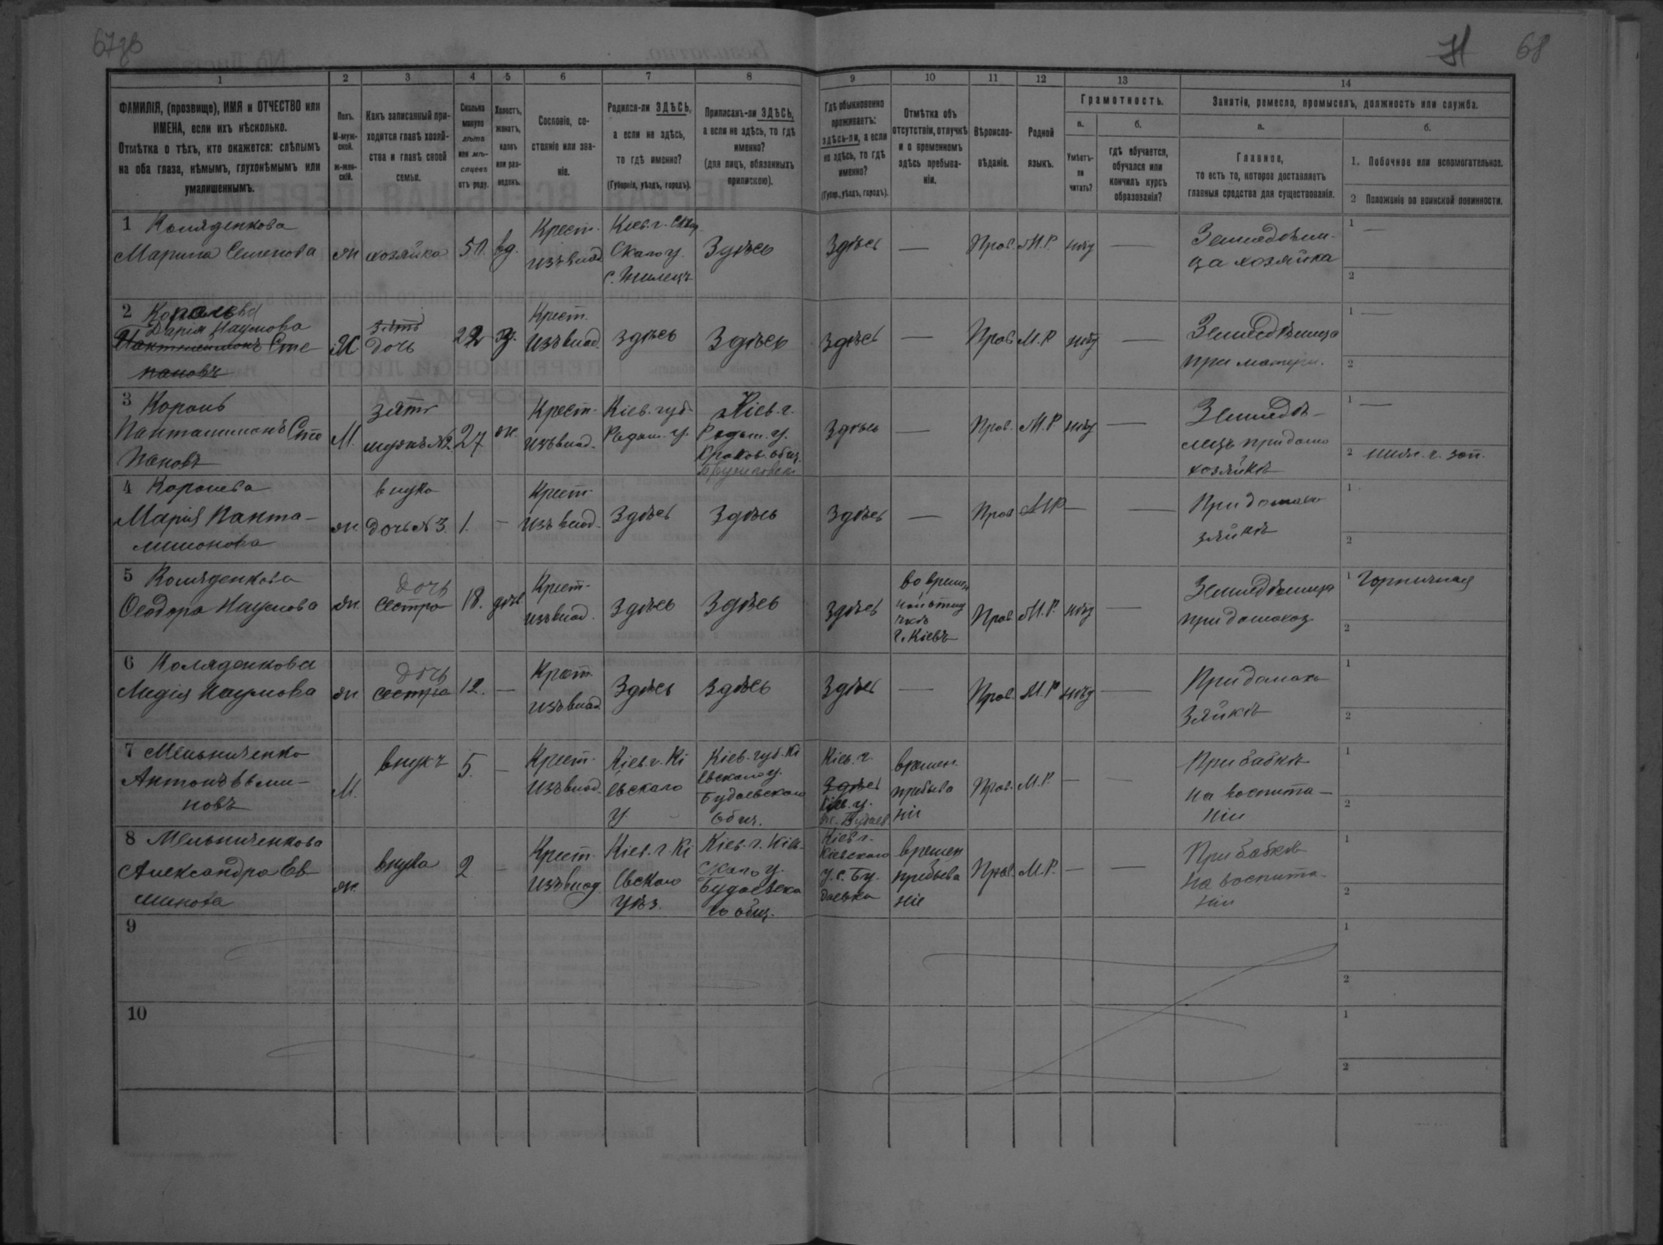 67об
68
1 2 3 4 5 6 7 8 9 10 11 12 13 14
ФАМИЛІЯ, (прозвище), ИМЯ и ОТЧЕСТВО или
ИМЕНА, если ихъ нѣсколько.
Отмѣтка о тѣхъ, кто окажется: слѣпымъ
на оба глаза, нѣмымъ, глухонѣмымъ или
умалишеннымъ.
Полъ.
М-муж-
ской.
ж-жен-
скій.
Какъ записанный при-
ходится главѣ хозяй-
ства и главѣ своей
семьи.
Сколько
минуло
лѣтъ
или мѣ-
сяцевъ
отъ роду.
Холостъ,
женатъ,
вдовъ
или раз-
веденъ.
Сословіе, со-
стояніе или зва-
ніе.
Родился-ли ЗДѢСЬ,
а если не здѣсь,
то гдѣ именно?
(Губернія, уѣздъ, городъ).
Приписанъ-ли ЗДѢСЬ,
а если не здѣсь, то гдѣ
именно?
(для лицъ, обязанныхъ
припискою).
Гдѣ обыкновенно
проживаетъ:
здѣсь-ли, а если
не здѣсь, то гдѣ
именно?
(Губер., уѣздъ, городъ).
Отмѣтка объ
отсутствіи, отлучкѣ
и о временномъ
здѣсь пребыва-
ніи.
Вѣроиспо-
вѣданіе.
Родной
языкъ.
Грамотность.
а.
Умѣетъ-
ли
читать?
б.
гдѣ обучается,
обучался или
кончилъ курсъ
образованія?
Занятіе, ремесло, промыселъ, должность или служба.
а.
Главное,
то есть то, которое доставляетъ
главныя средства для существованія.
б.
1. Побочное или вспомогательное.
2 Положеніе по воинской повинности.
1 Коляденкова
Марина Семенова
ж
хозяйка
50.
вд.
Крест.
изъ влад.
Кіев. г. Сквир
скаго у.
Здѣсь
Здѣсь
—
Прав.
М.Р.
нѣт
—
Земледѣли-
ца хозяйка
1 —
2
2 Королева
Дарія Наумова
Пантелеимонъ Сте
пановъ
Ж
зять
дочь
22
з.
Крест.
изъ влад.
здѣсь
Здѣсь
здѣсь
—
Прав.
М.Р.
нѣт
—
Земледѣлица
при матери.
1 —
2
3 Король
Панталимонъ Сте
пановъ
М.
зять
мужъ №2
27
ж.
Крест.
изъ влад.
Кіев. губ.
Радом. у.
Кіев. г.
Радом. у.
здѣсь
—
Прав.
М.Р
нѣт
—
Земледѣ-
лецъ при домо
хозяйкѣ
1 —
2
4 Королева
Марія Панта-
лимонова
ж
внука
дочь №3
1.
—
Крест.
изъ влад.
Здѣсь
Здѣсь
Здѣсь
—
Прав.
М.Р.
—
—
При домохо
зяйкѣ
1
2
5 Коляденкова
Ѳеодора Наумова
ж.
дочь
сестра
18.
дѣв.
Крест.
изъ влад.
Здѣсь
Здѣсь
здѣсь
во времен
ной отлу
чкѣ
г. Кіевъ
Прав.
М.Р.
нѣт
—
Земледѣлица
при домохоз.
1 Горничная
2
6 Коляденкова
Лидія Наумова
ж
дочь
сестра
12.
—
Крест.
изъ влад.
Здѣсь
здѣсь
Здѣсь
—
Прав.
М.Р
нѣт
—
При домохо
зяйкѣ
1
2
7 Мельниченко
Антонъ Евми-
новъ
М.
внукъ
5.
—
Крест.
изъ влад.
Кіев. г. Кі
евскаго
у
Кіев. губ. Кі
евскаго у.
Будаевскаго
общ.
Кіев. г.
здѣсь
Кіев. у.
времен.
пребыва
ніе
Прав.
М.Р
—
—
При бабкѣ
на воспита-
ніи
1
2
8 Мельниченкова
Александра Ев
минова
ж.
внука
2
—
Крест.
изъ влад.
Кіев. г. Кі
евскаго
уѣз.
Кіев. г. Кіев-
скаго у.
Будаевска
го общ.
Кіев. г.
Кіевскаго
у. с. Бу-
даевка
времен
пребыва
ніе
Прав.
М.Р.
—
—
При бабкѣ
на воспита-
ніи
1
2
9
1
2
10
1
2